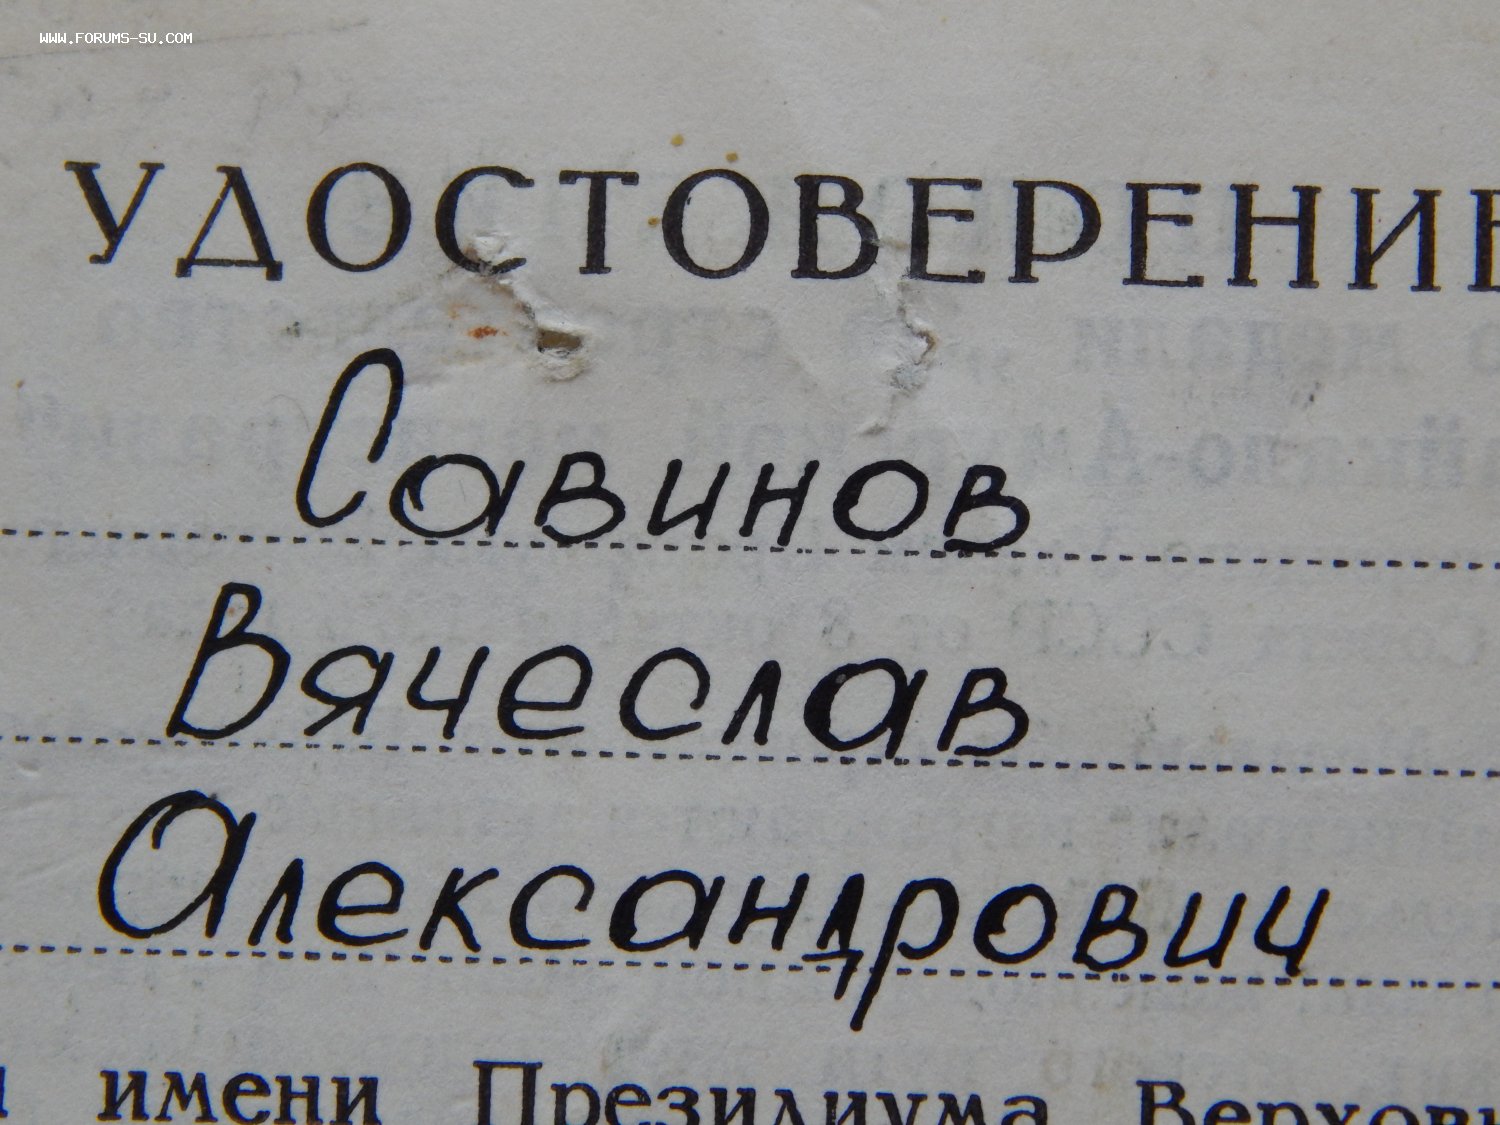 WWW.FORUMS-SU.COM
УДОСТОВЕРЕНИЕ
Савинов
Вячеслав
Александрович
имени Президиума Верховн